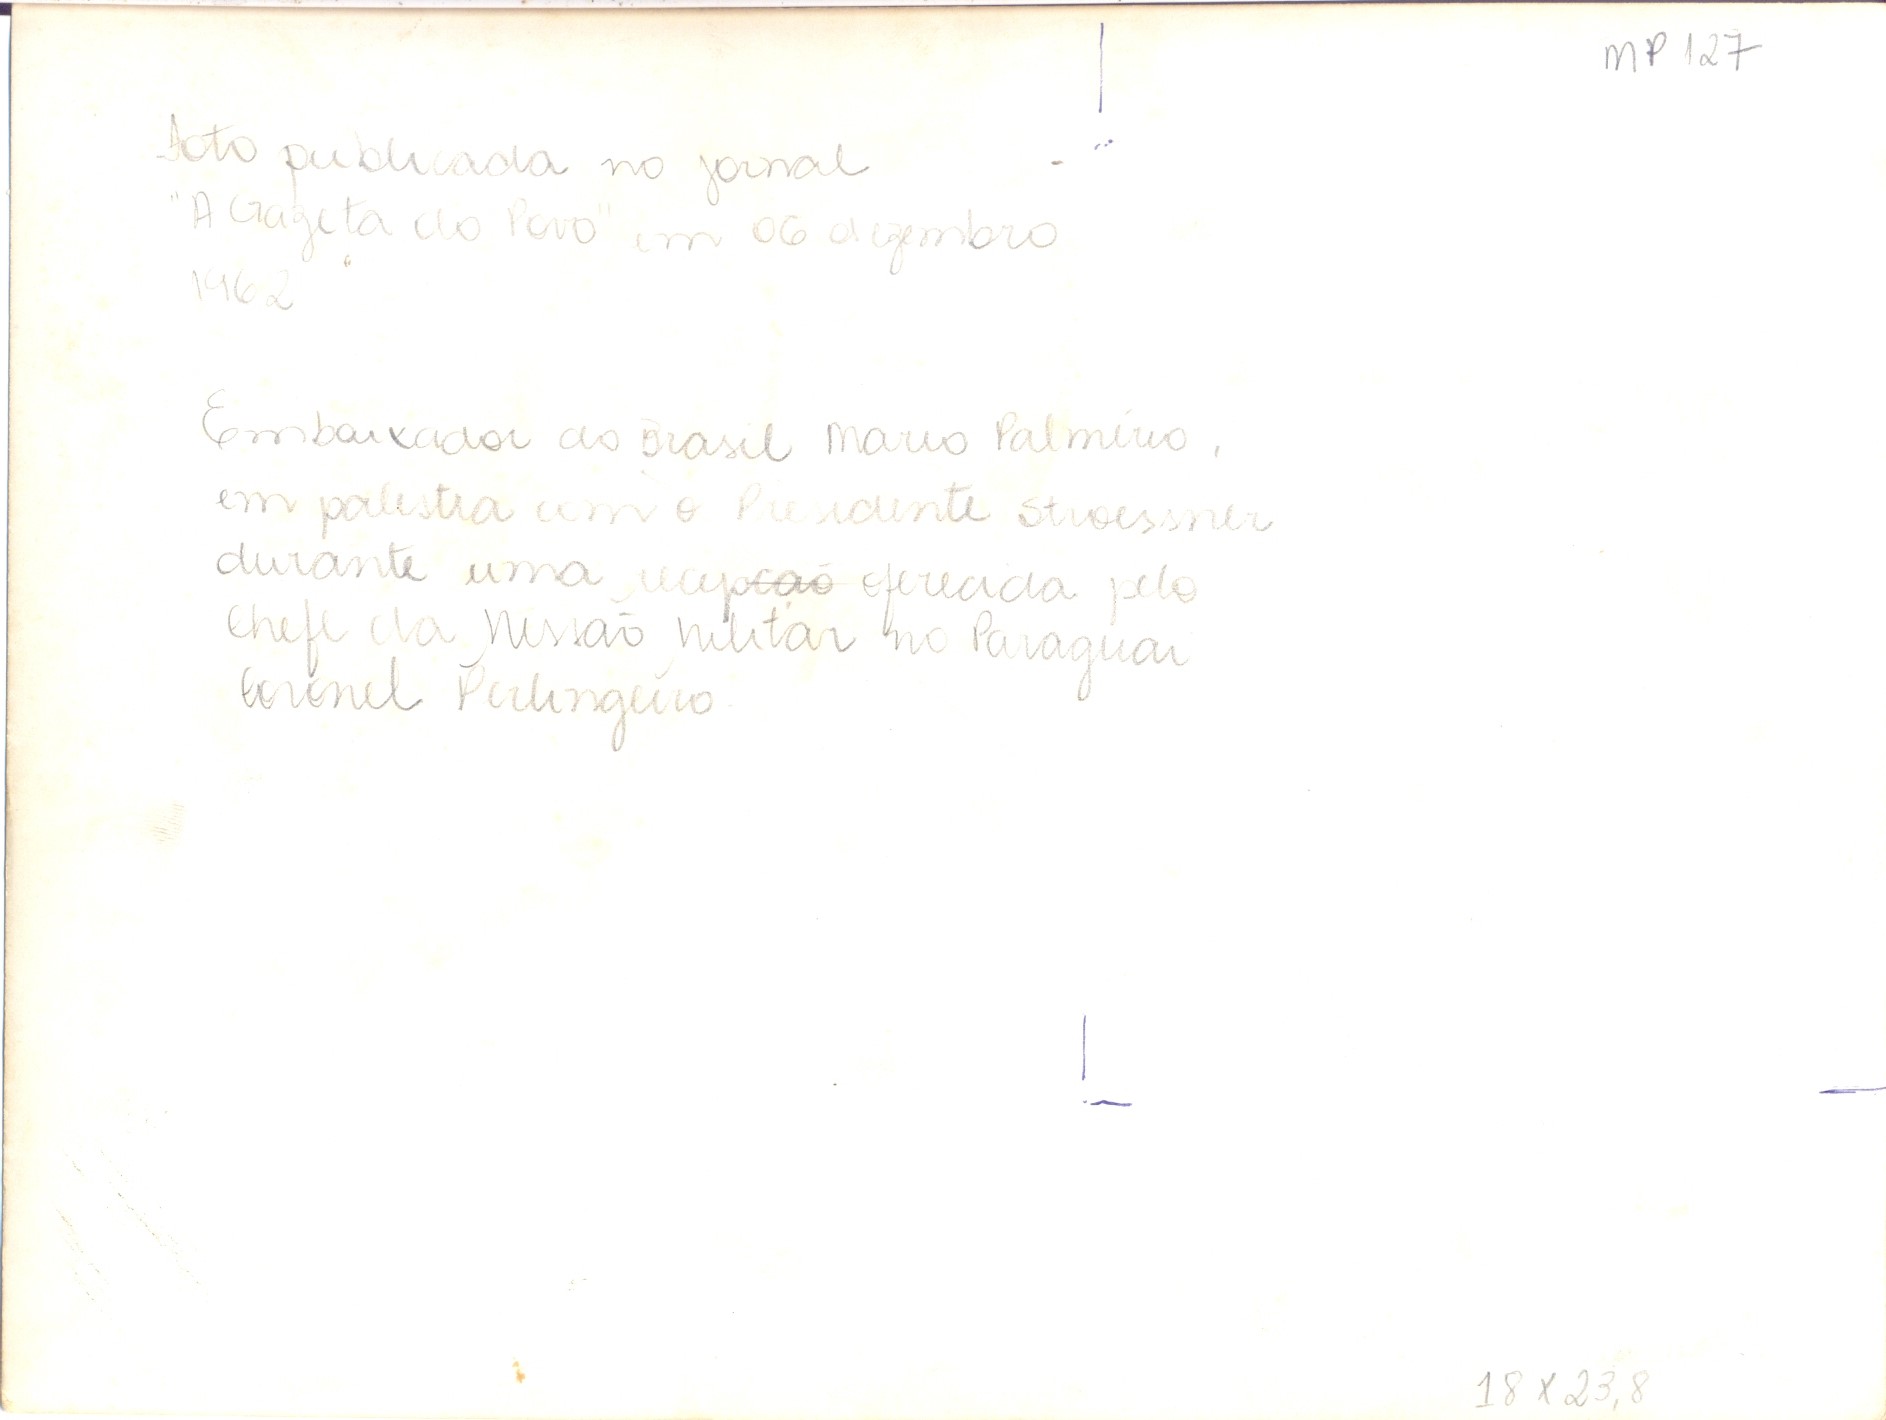 MP 127
Foto publicada no jornal
"A Gazeta do Povo" em 06 dezembro
1962
Embaixador do Brasil Mario Palmério,
em palestra com o Presidente Stroessner
durante uma recepcão oferecida pelo
Chefe da Missão Militar no Paraguai
Coronel Perlingeiro
18 x 23,8